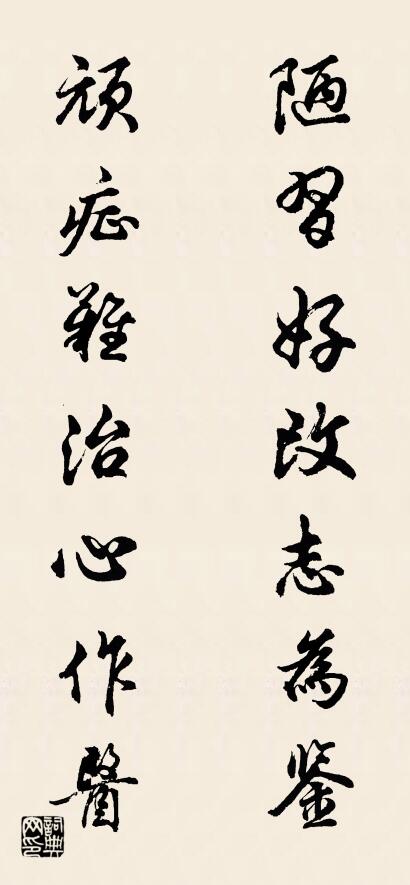 陋習好改志為鉴
頑症難治心作醫
詞典网印